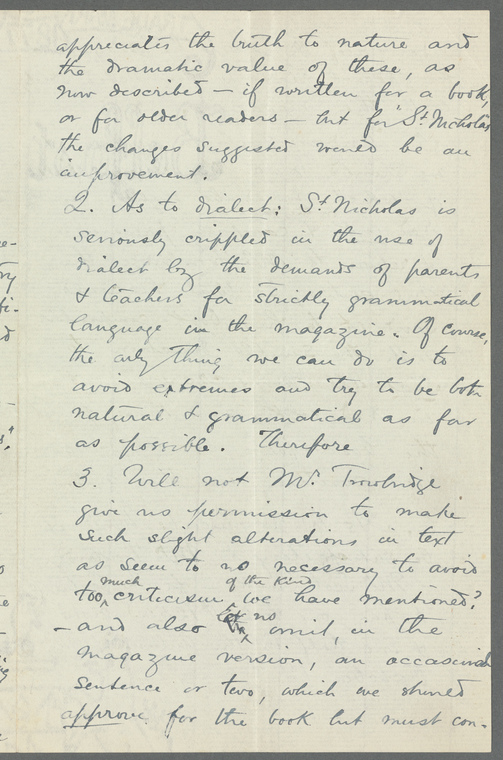 appreciates the truth to nature and
the dramatic value of these, as
now described — if written for a book,
or for older readers — but for "St. Nicholas"
the changes suggested would be an
improvement.
2. As to dialect: St Nicholas is
seriously crippled in the use of
dialect by the demands of parents
& teachers for strictly grammatical
language in the magazine. Of course,
the only thing we can do is to
avoid extremes and try to be both
natural & grammatical as far
as possible. Therefore
3. Will not Mr. Trowbridge
give us permission to make
such slight alterations in text
as seem to us necessary to avoid
much of the kind
too criticism we have mentioned?
let us
— and also omit, in the
magazine version, an occasional
sentence or two, which we should
approve for the book but must con-